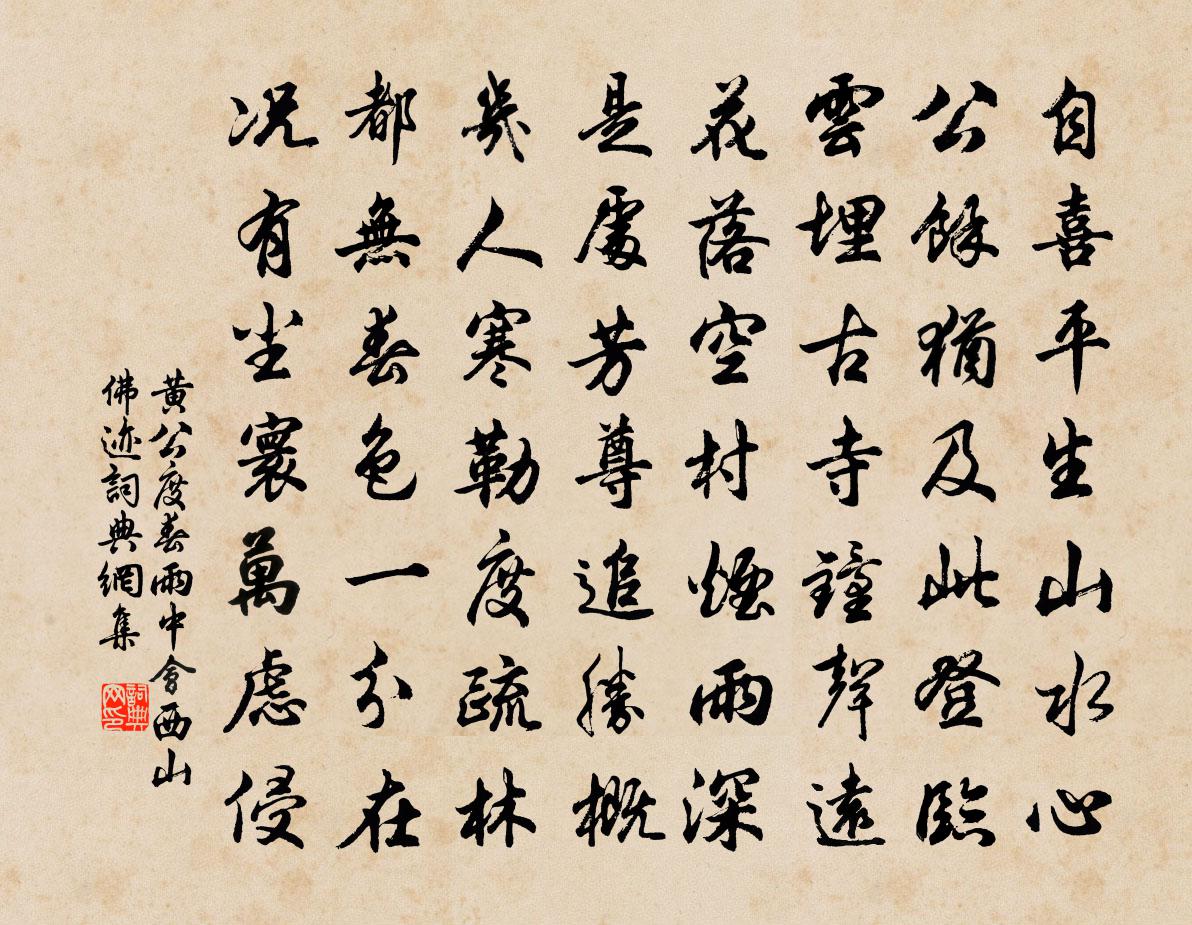 自喜平生山水心
公餘猶及此登臨
雲埋古寺鐘聲遠
花落空村煙雨深
是處芳尊追勝概
幾人寒勒度疏林
都無春色一分在
况有尘寰萬慮侵
黄公度春雨中會西山
佛迹詞典網集
詞典
网印